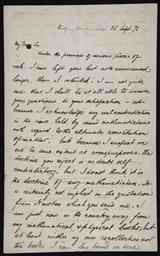 25 Sept. 71
My Dear Sir
Under the pressure of various pieces of
work, I have left your last note unanswered
longer than I intended. I am not quite
sure that I shall be at all able to answer
your questions to your satisfaction - not
because I acknowledge any
in the views held by sound mathematicians
with regard to the ultimate constitution
of matter, but because I suspect we
are to some extent at cross-purposes. The
doctrine you reject is no doubt self-
contradictory, but I do not think it is
the doctrine of any mathematician. It
is certainly not implied in the quotation
from Newton which you send me. I
am just now in the country away from
my mathematical & physical books, but
the books I can lay hand on here